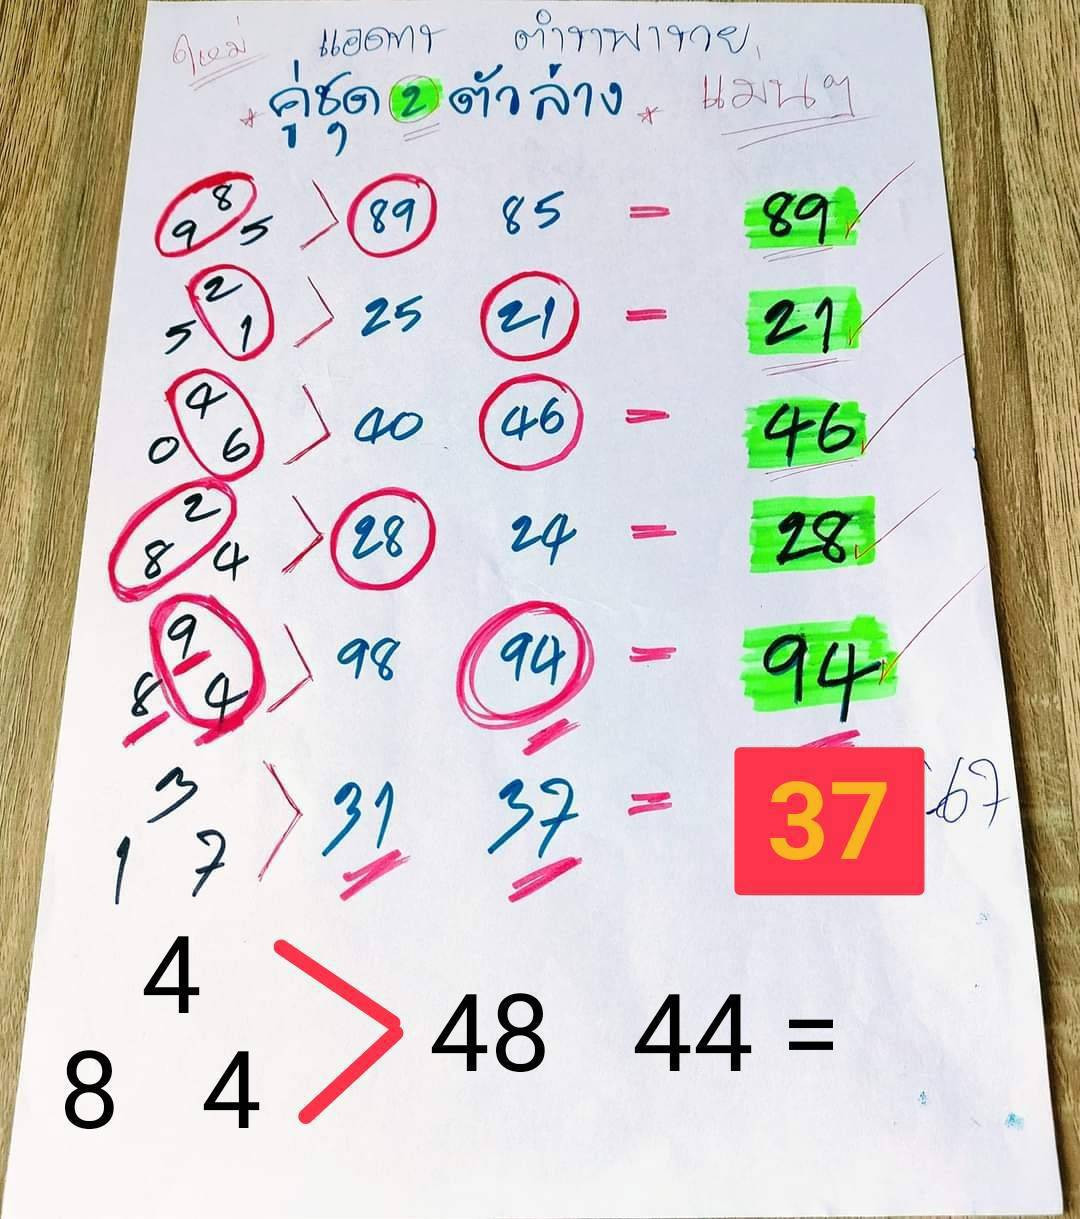 แอดทาร ตำราพารวย
คู่ชุด 2 ตัวล่าง แม่นๆ
8
9 5 > 89 85 = 89
2
5 1 > 25 21 = 21
4
0 6 > 40 46 = 46
2
8 4 > 28 24 = 28
9
8 4 > 98 94 = 94
3
1 7 > 31 37 = 37
4
8 4 > 48 44 =